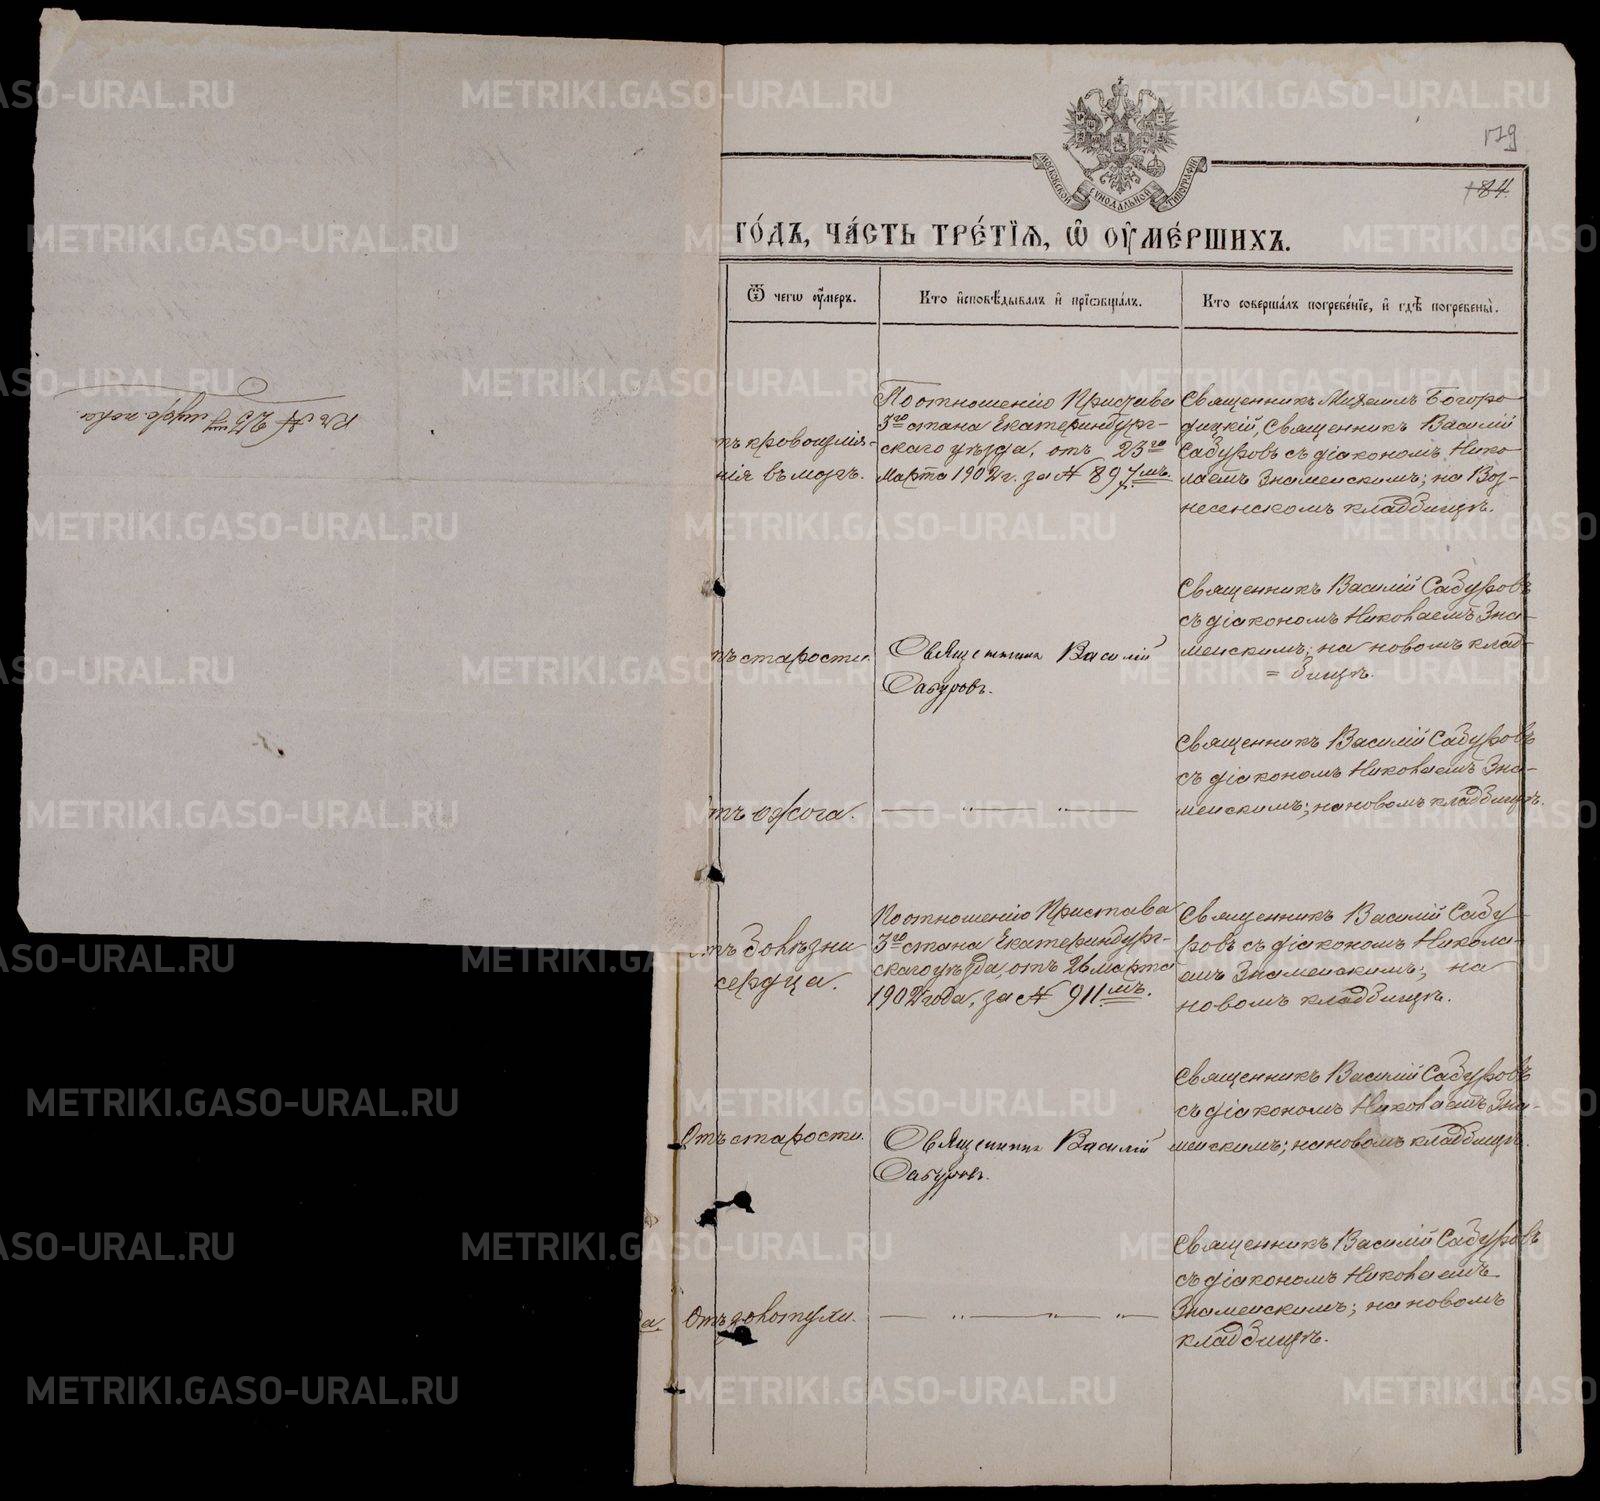 179
184.
МОСКОВСКОЙ СѴНОДАЛЬНОЙ ТИПОГРАФІИ
ГО́ДЪ, ЧА́СТЬ ТРЕ́ТІѦ, Ѿ ОУ҆МЕ́РШИХЪ.
Ѿ чегѡ оу҆́меръ.
Кто и҆сповѣ́дывалъ и҆ прїѡбща́лъ.
Кто соверша́лъ погребе́нїе, и҆ гдѣ̀ погребены̀.
тъ кровоизлія-
нія въ мозгъ.
По отношенію Пристава
3го стана Екатеринбург-
скаго уѣзда, отъ 23го
Марта 1902 г. за № 897мъ.
Священникъ Михаилъ Богоро
дицкій, Священникъ Василій
Сабуровъ съ діакономъ Нико
лаемъ Знаменскимъ; на Воз-
несенскомъ кладбищѣ.
тъ старости.
Священникъ Василій
Сабуровъ.
Священникъ Василій Сабуровъ
съ діакономъ Николаемъ Зна-
менскимъ; на новомъ клад-
= бищѣ.
тъ ожога.
— „ — „ —
Священникъ Василій Сабуровъ
съ діакономъ Николаемъ Зна-
менскимъ; на новомъ кладбищѣ.
тъ болѣзни
сердца.
По отношенію Пристава
3го стана Екатеринбург-
скаго уѣзда, отъ 26 марта
1902 года, за № 911мъ.
Священникъ Василій Сабу-
ровъ съ діакономъ Никола-
емъ Знаменскимъ; на
новомъ кладбищѣ.
Отъ старости.
Священникъ Василій
Сабуровъ.
Священникъ Василій Сабуровъ
съ діакономъ Николаемъ Зна-
менскимъ; на новомъ кладбищѣ.
да.
— „ — „ — „
Священникъ Василій Сабуровъ
съ діакономъ Николаемъ
Знаменскимъ; на новомъ
кладбищѣ.
METRIKI.GASO-URAL.RU